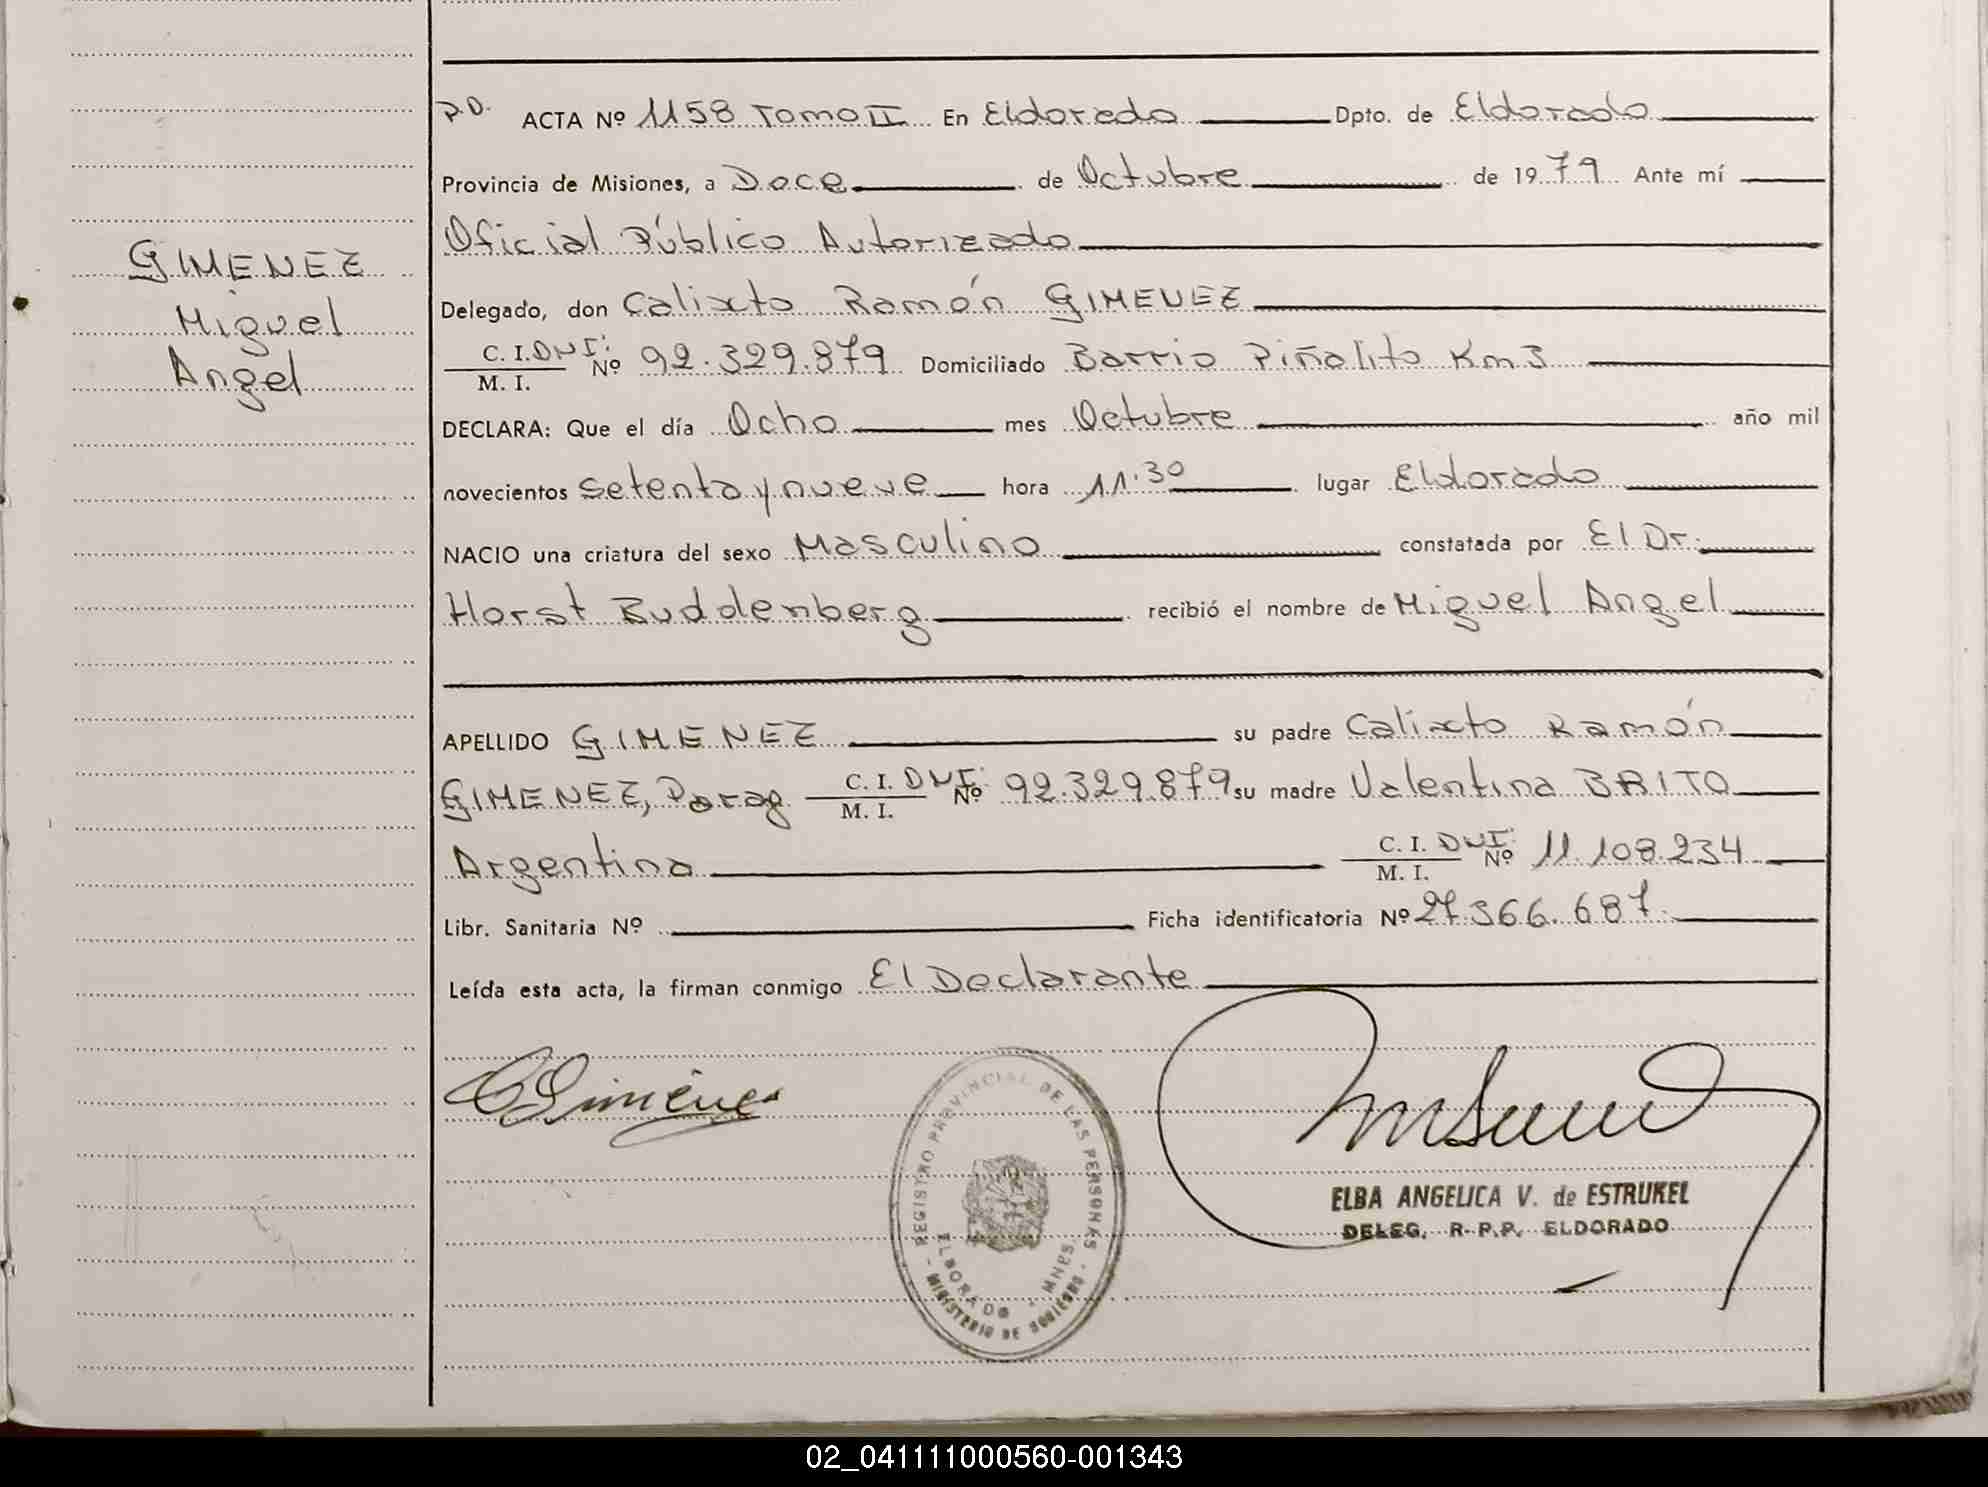 GIMENEZ
Miguel
Angel
P.D. ACTA Nº 1158 Tomo II En Eldorado Dpto. de Eldorado
Provincia de Misiones, a Doce de Octubre de 1979 Ante mí
Oficial Público Autorizado
Delegado, don Calixto Ramón GIMENEZ
C. I. DNI: Nº 92.329.879 Domiciliado Barrio Piñalito Km3
M. I.
DECLARA: Que el día Ocho mes Octubre año mil
novecientos setenta y nueve hora 11.30 lugar Eldorado
NACIO una criatura del sexo Masculino constatada por El Dr.
Horst Buddenberg recibió el nombre de Miguel Angel
APELLIDO GIMENEZ su padre Calixto Ramón
GIMENEZ, Parag C. I. DNI: Nº 92.329.879 su madre Valentina BRITO
M. I.
Argentina C. I. DNI: Nº 11.108.234
M. I.
Libr. Sanitaria Nº Ficha identificatoria Nº 27.366.687.
Leída esta acta, la firman conmigo El Declarante
CGiménez
REGISTRO PROVINCIAL DE LAS PERSONAS
ELDORADO - MNES.
- MINISTERIO DE GOBIERNO -
ELBA ANGELICA V. de ESTRUKEL
DELEG. R. P. P. ELDORADO
02_041111000560-001343